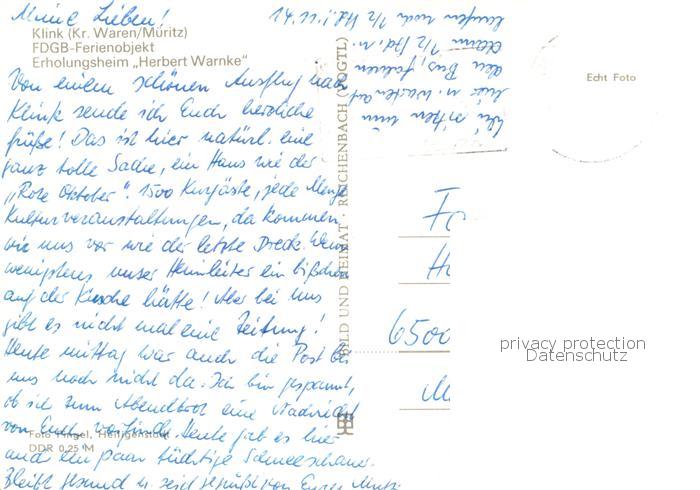 Meine Lieben! 14.11.
Klink (Kr. Waren/Müritz)
FDGB-Ferienobjekt
Erholungsheim „Herbert Warnke"
Von einem schönen Ausflug nach
Klink sende ich Euch herzliche
Grüße! Das ist hier natürl. eine
ganz tolle Sache, ein Haus wie der
„Rote Oktober". 1500 Kurgäste, jede Menge
Kulturveranstaltungen, da kommen
wir uns vor wie der letzte Dreck. Wenn
wenigstens unser Heimleiter ein bißchen
auf der Kirsche hätte! Aber bei uns
gibt es nicht mal eine Zeitung!
Heute mittag war auch die Post bei
uns noch nicht da. Ich bin gespannt,
ob ich zum Abendbrot eine Nachricht
von Euch vorfinde. Heute gab es hier
auch ein paar tüchtige Schneeschauer.
Bleibt gesund u. seid gegrüßt von Eurer Mutti
Foto Hingel, Heiligenstadt
DDR 0,25 M
BILD UND HEIMAT · REICHENBACH (VOGTL)
Wir sitzen nun
hier u. warten auf
den Bus, fahren
dann 1/2 Std. u.
laufen noch 1/2 Std.
Echt Foto
F
H
6500
M
privacy protection
Datenschutz